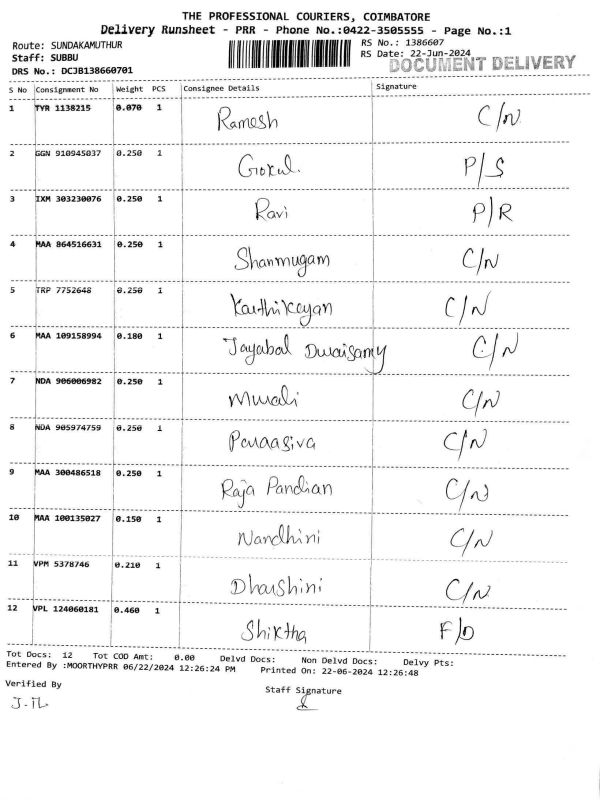 THE PROFESSIONAL COURIERS, COIMBATORE
Delivery Runsheet - PRR - Phone No.:0422-3505555 - Page No.:1
Route: SUNDAKAMUTHUR RS No.: 1386607
Staff: SUBBU RS Date: 22-Jun-2024
DOCUMENT DELIVERY
DRS No.: DCJB138660701
S No Consignment No Weight PCS Consignee Details Signature
1 TYR 1138215 0.070 1 Ramesh C/N
2 GGN 910945037 0.250 1 Gokul. P/S
3 IXM 303230076 0.250 1 Ravi P/R
4 MAA 864516631 0.250 1 Shanmugam C/N
5 TRP 7752648 0.250 1 Karthikeyan C/N
6 MAA 109158994 0.180 1 Jayabal Duraisamy C/N
7 NDA 906006982 0.250 1 Murali C/N
8 NDA 905974759 0.250 1 C/N
9 MAA 300486518 0.250 1 Raja Pandian C/N
10 MAA 100135027 0.150 1 Nandhini C/N
11 VPM 5378746 0.210 1 Dharshini C/N
12 VPL 124060181 0.460 1 Shiktha F/D
Tot Docs: 12 Tot COD Amt: 0.00 Delvd Docs: Non Delvd Docs: Delvy Pts:
Entered By :MOORTHYPRR 06/22/2024 12:26:24 PM Printed On: 22-06-2024 12:26:48
Verified By Staff Signature